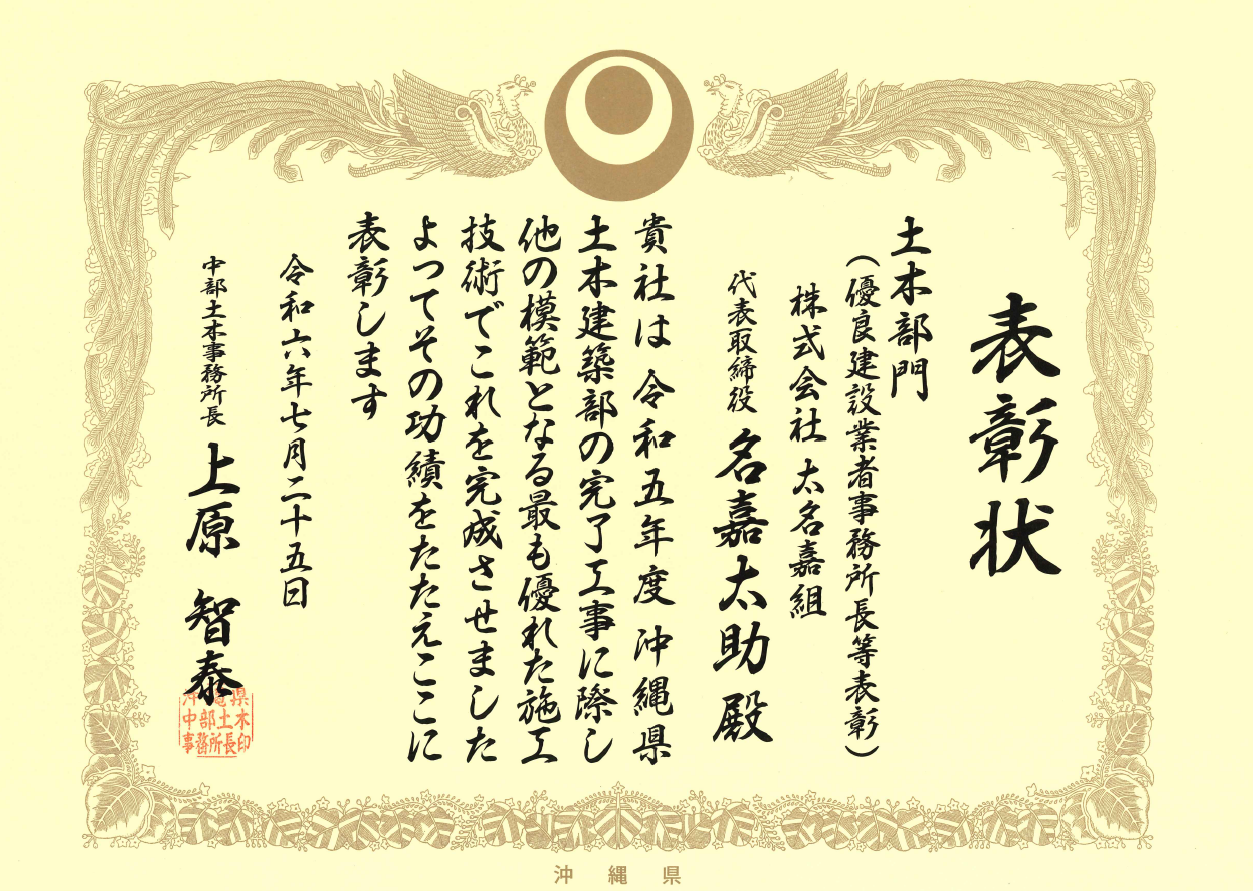 表彰状
土木部門
（優良建設業者事務所長等表彰）
株式会社 太名嘉組
代表取締役 名嘉太助 殿
貴社は令和五年度沖縄県
土木建築部の完了工事に際し
他の模範となる最も優れた施工
技術でこれを完成させました
よってその功績をたたえここに
表彰します
令和六年七月二十五日
中部土木事務所長 上原 智泰
沖縄県
中部土木
事務所長印
沖縄県